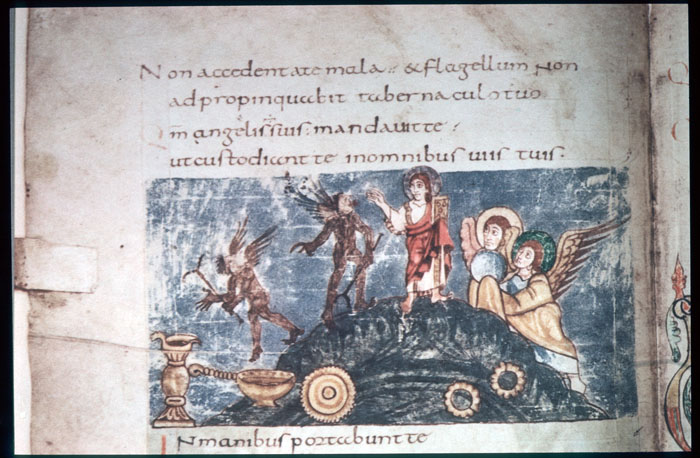 Non accedent ate mala. & flagellum non
adpropinquabit tabernaculo tuo
Qm̄ angelis suis mandauit te.
ut custodiant te inomnibus uiis tuis.
IN manibus portabunt te